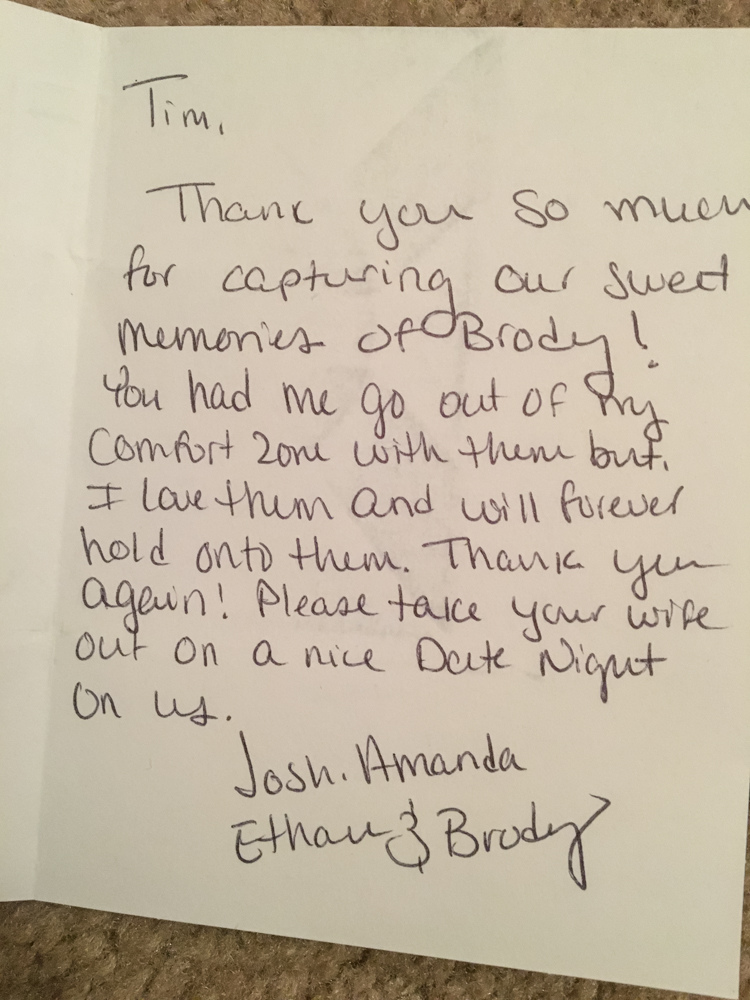 Tim,
Thank you so much
for capturing our sweet
memories of Brody!
You had me go out of my
comfort zone with them but.
I love them and will forever
hold onto them. Thank you
again! Please take your wife
out on a nice Date Night
on us.
Josh. Amanda
Ethan & Brody